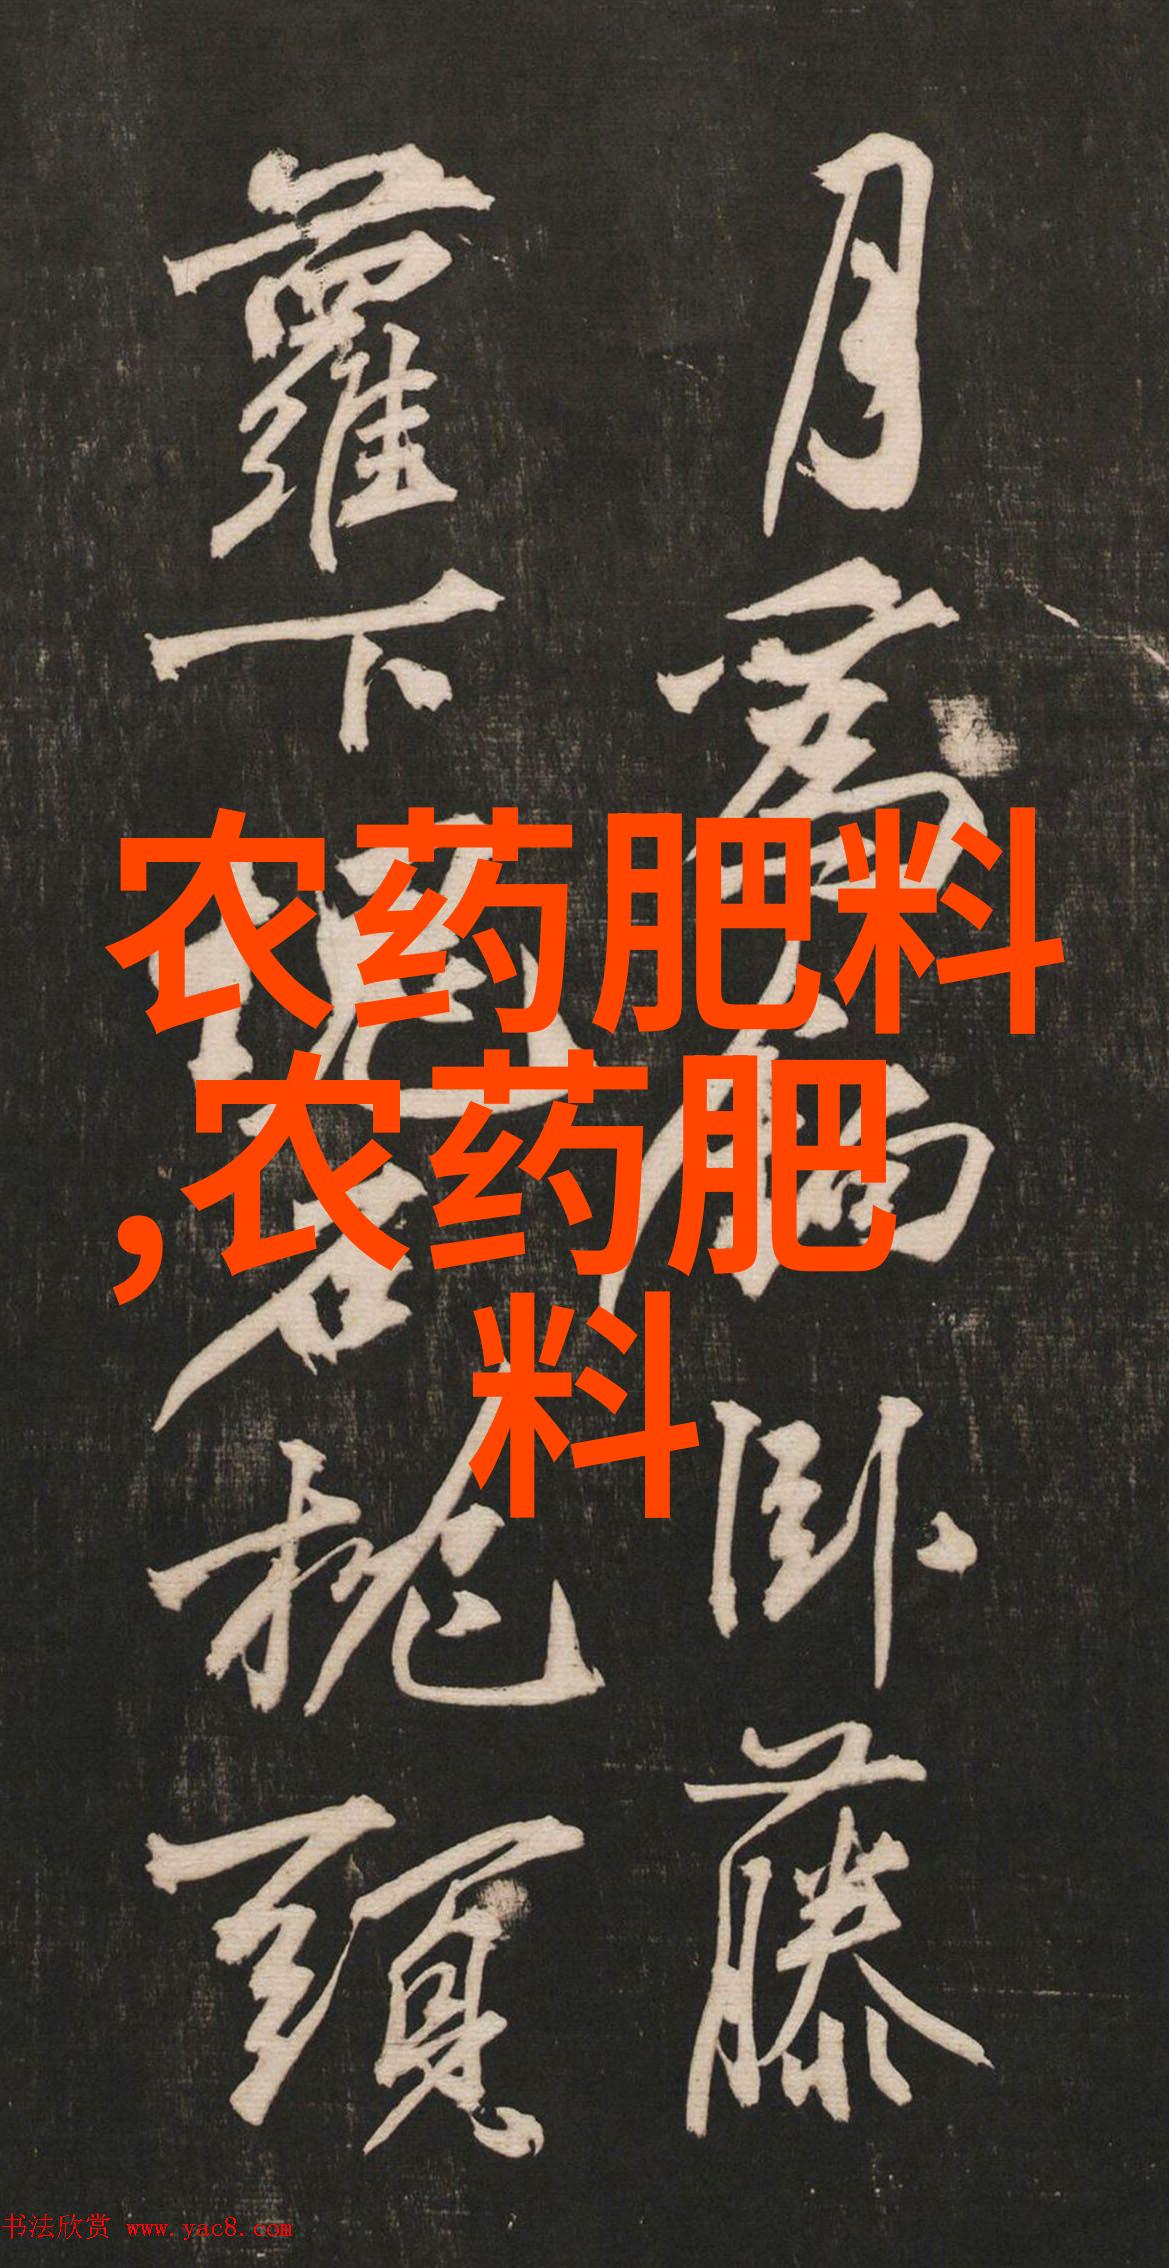 月爲臥藤
蘿下石枕頭
农药肥料
,农药肥
料
书法欣赏 www.yac8.com